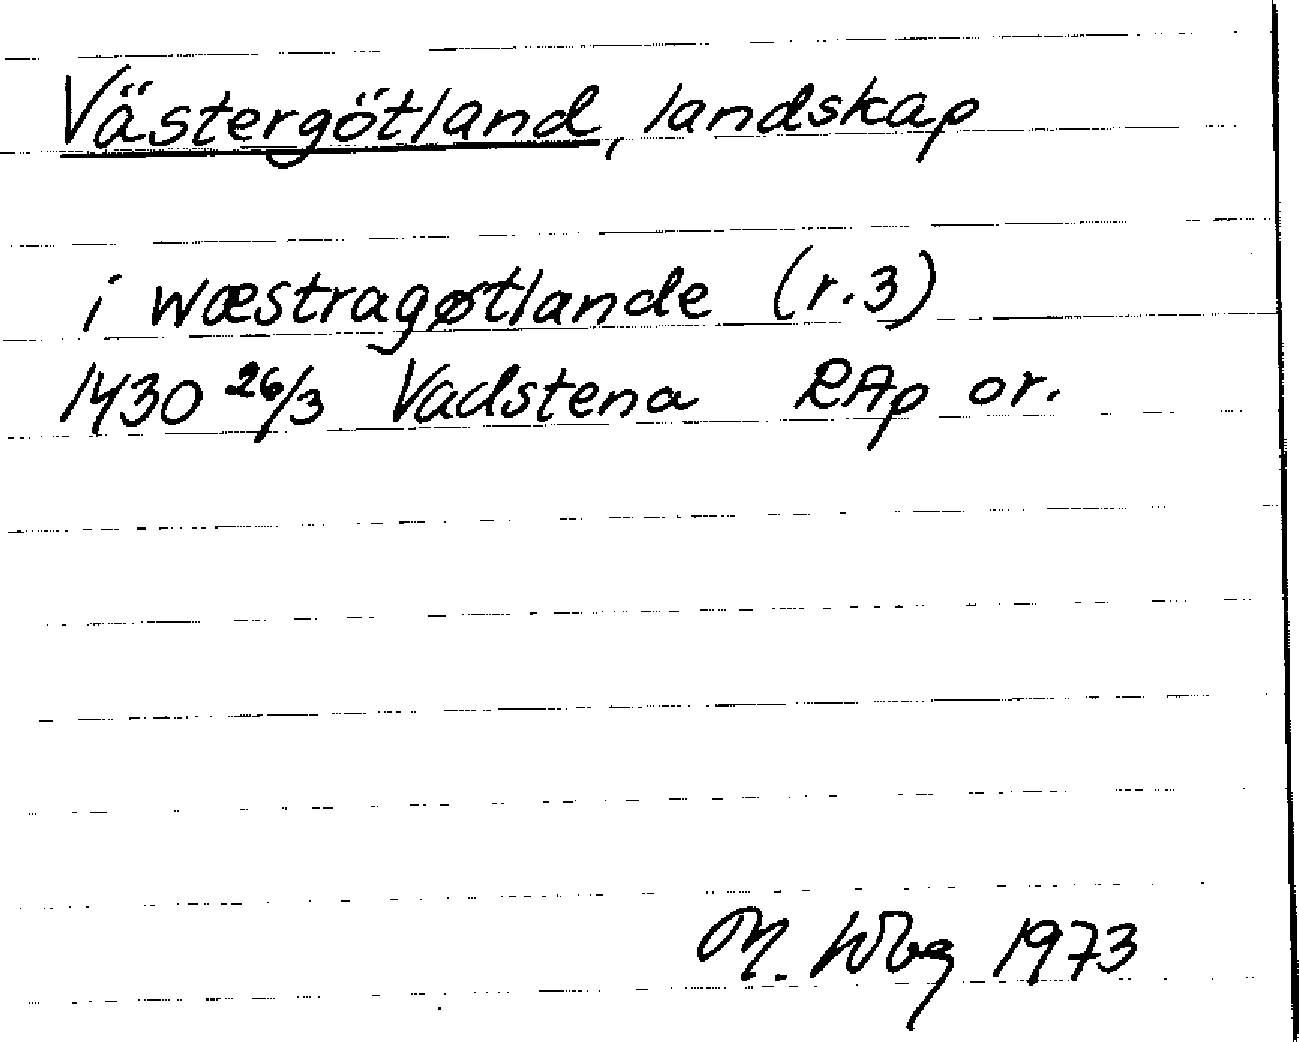 Västergötland, landskap
i wæstragøtlande (r.3)
1430 26/3 Vadstena RAp or.
M. Wbg 1973